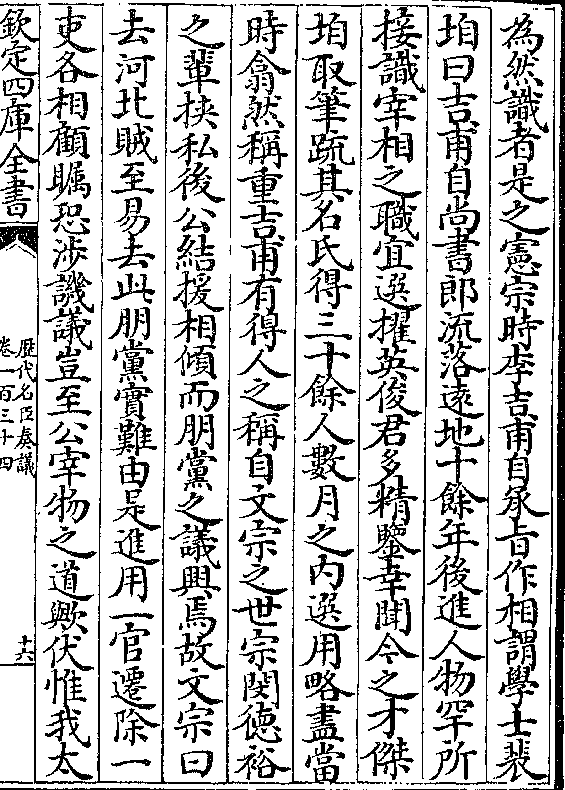 為然識者是之憲宗時李吉甫自承㫖作相謂學士裴
垍曰吉甫自尚書郎流落逺地十餘年後進人物罕所
接識宰相之職宜選擢英俊君多精鑒幸聞今之才傑
垍取筆疏其名氏得三十餘人數月之内選用略盡當
時翕然稱重吉甫有得人之稱自文宗之世宗閔徳裕
之輩挾私後公結援相傾而朋黨之議興焉故文宗曰
去河北賊至易去此朋黨實難由是進用一官遷除一
吏各相顧矚恐涉譏議豈至公宰物之道歟伏惟我太
欽定四庫全書
歴代名臣奏議
卷一百三十四
十六